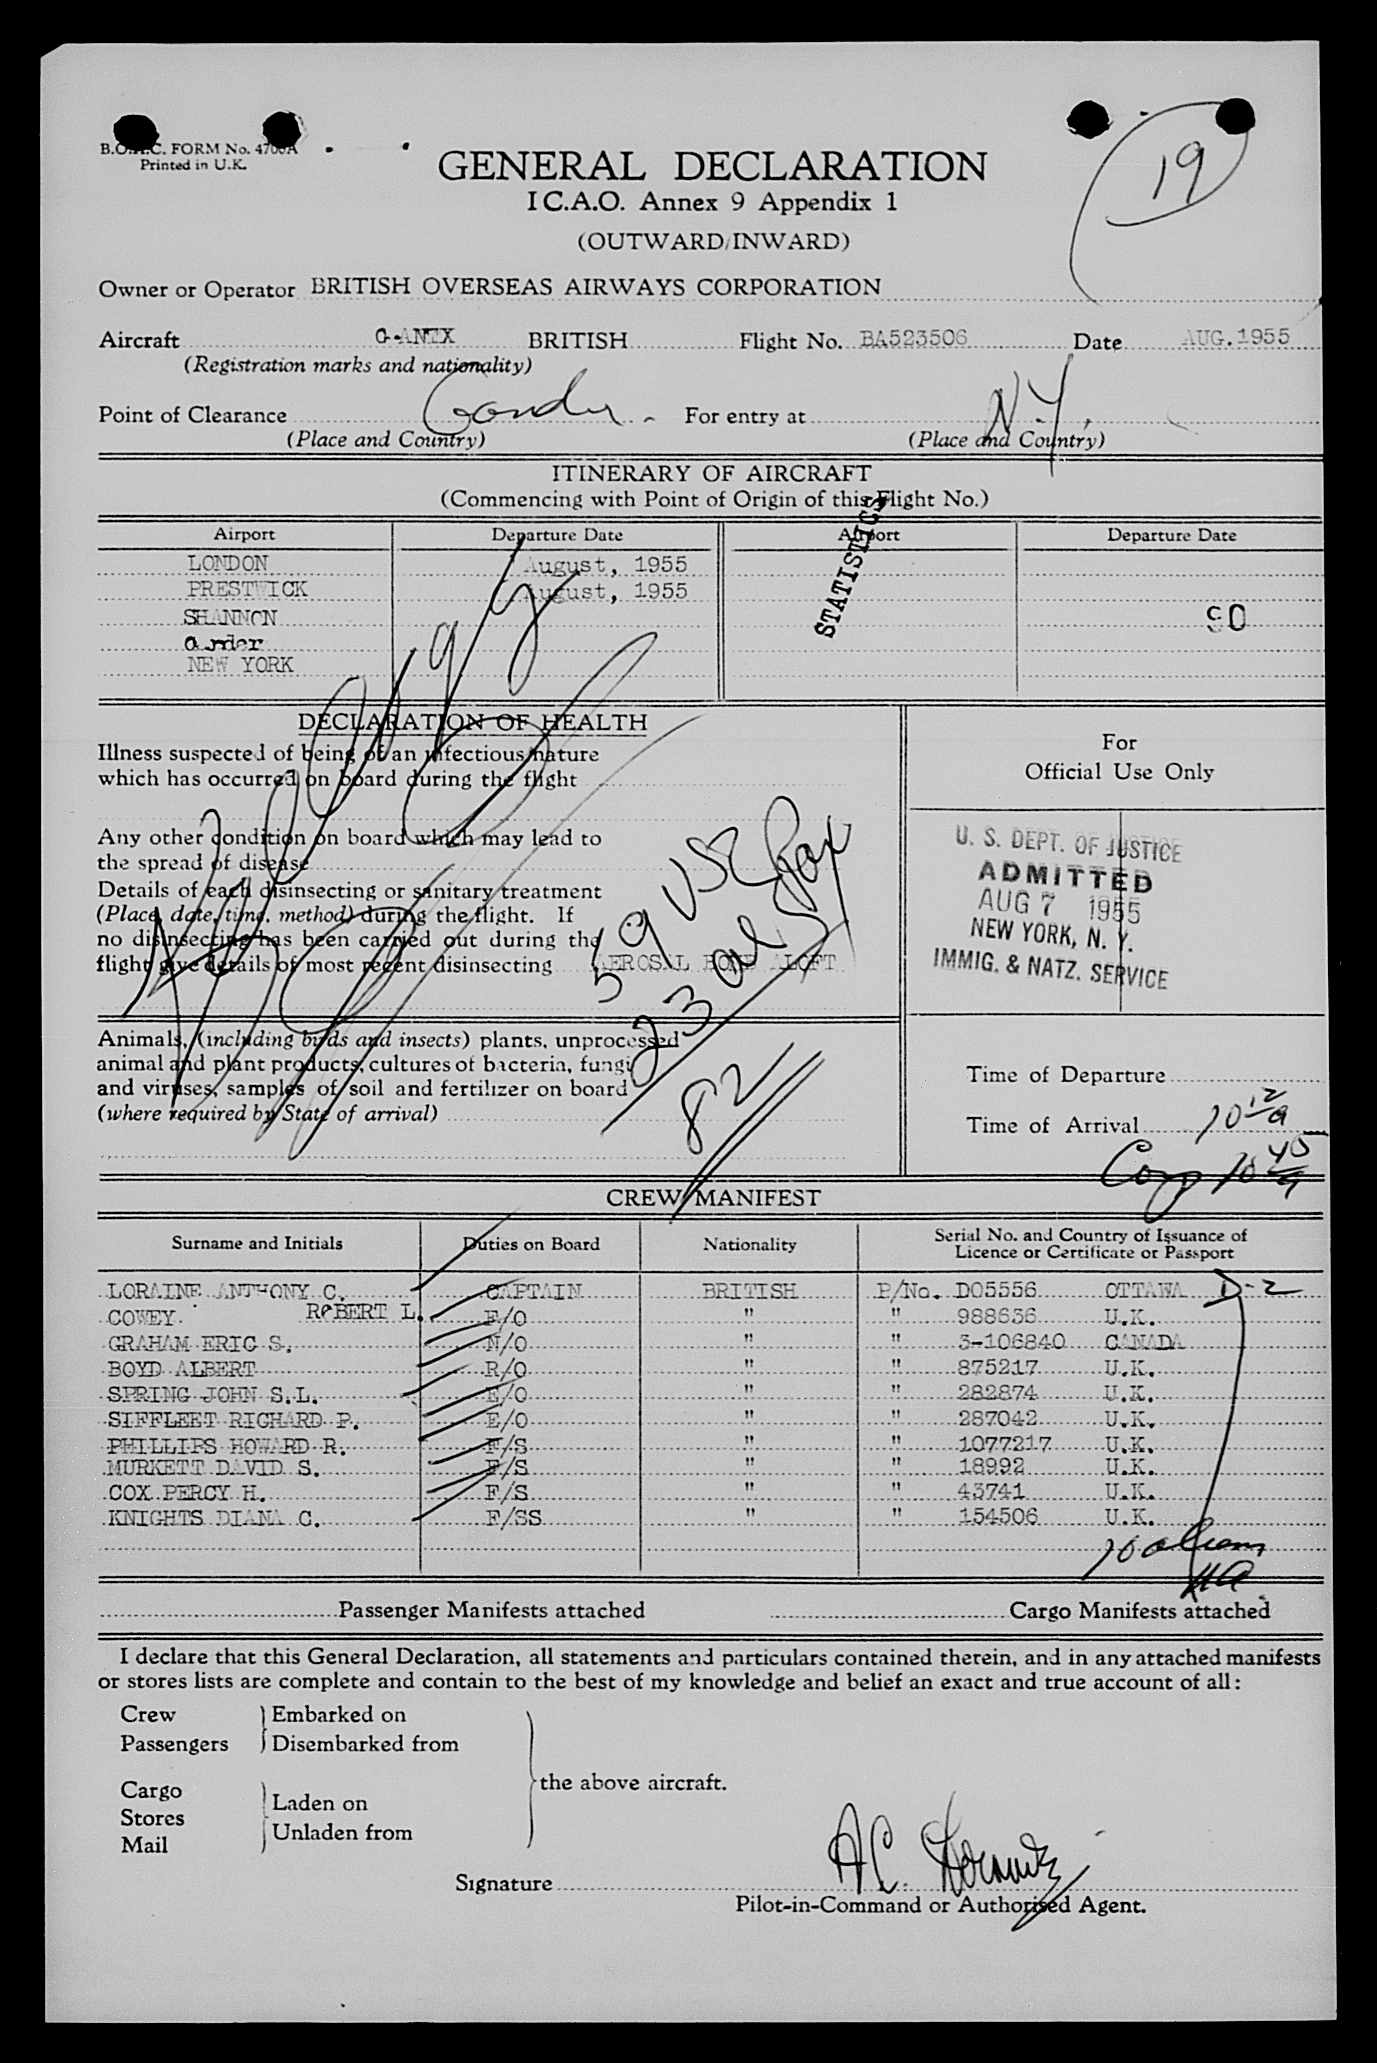 B.O.A.C. FORM No. 4700A
Printed in U.K.
19
GENERAL DECLARATION
I C.A.O. Annex 9 Appendix 1
(OUTWARD/INWARD)
Owner or Operator BRITISH OVERSEAS AIRWAYS CORPORATION
Aircraft G-ANTX BRITISH Flight No. BA523506 Date AUG. 1955
(Registration marks and nationality)
Point of Clearance Gander For entry at N.Y.
(Place and Country) (Place and Country)
ITINERARY OF AIRCRAFT
(Commencing with Point of Origin of this Flight No.)
STATISTICS
Airport Departure Date Airport Departure Date
LONDON August, 1955
PRESTWICK August, 1955
SHANNON 90
ander
NEW YORK
DECLARATION OF HEALTH
Illness suspected of being of an infectious nature
which has occurred on board during the flight
Any other condition on board which may lead to
the spread of disease
Details of each disinsecting or sanitary treatment
(Place, date, time, method) during the flight. If
no disinsecting has been carried out during the
flight give details of most recent disinsecting AEROSAL BOMB ALOFT
59 USC
23 al
82
Animals, (including birds and insects) plants, unprocessed
animal and plant products, cultures of bacteria, fungi
and viruses, samples of soil and fertilizer on board
(where required by State of arrival)
For
Official Use Only
U. S. DEPT. OF JUSTICE
ADMITTED
AUG 7 1955
NEW YORK, N. Y.
IMMIG. & NATZ. SERVICE
Time of Departure
Time of Arrival 10 12/a
10 45/a
CREW MANIFEST
Surname and Initials Duties on Board Nationality Serial No. and Country of Issuance of
Licence or Certificate or Passport
LORAINE ANTHONY C. CAPTAIN BRITISH P/No. D05556 OTTAWA D-2
COWEY ROBERT L. F/O " " 988636 U.K.
GRAHAM ERIC S. N/O " " 3-106840 CANADA
BOYD ALBERT R/O " " 875217 U.K.
SPRING JOHN S.L. E/O " " 282874 U.K.
SIFFLEET RICHARD P. E/O " " 287042 U.K.
PHILLIPS HOWARD R. F/S " " 1077217 U.K.
MURKETT DAVID S. F/S " " 18992 U.K.
COX PERCY H. F/S " " 43741 U.K.
KNIGHTS DIANA C. F/SS " " 154506 U.K.
10 aliens
Passenger Manifests attached Cargo Manifests attached
I declare that this General Declaration, all statements and particulars contained therein, and in any attached manifests
or stores lists are complete and contain to the best of my knowledge and belief an exact and true account of all:
Crew Embarked on
Passengers Disembarked from
the above aircraft.
Cargo Laden on
Stores Unladen from
Mail
Signature
Pilot-in-Command or Authorised Agent.